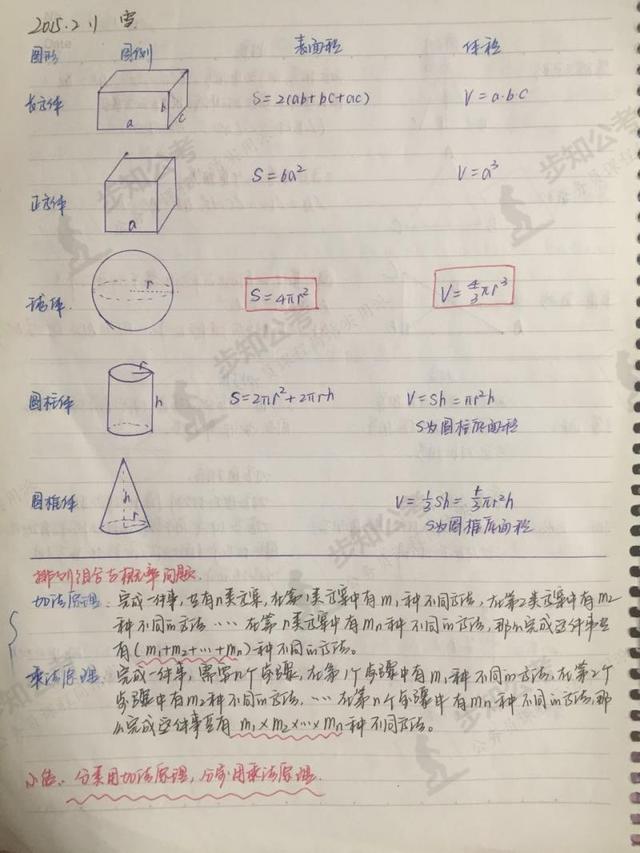 2015.2.11 雪
图形 图例 表面积 体积
长方体 a b c S=2(ab+bc+ac) V=a·b·c
正方体 a S=6a² V=a³
球体. r S=4πr² V=4/3πr³
圆柱体 r h S=2πr²+2πrh V=Sh=πr²h
S为圆柱底面积
圆椎体 h r V=1/3Sh=1/3πr²h
S为圆椎底面积
排列组合与概率问题.
加法原理: 完成一件事,共有n类方案,在第1类方案中有m₁种不同方法,在第2类方案中有m₂
种不同的方法……在第n类方案中有mn种不同的方法,那么完成这件事共
有(m₁+m₂+…+mn)种不同的方法。
乘法原理: 完成一件事,需要n个步骤,在第1个步骤中有m₁种不同的方法,在第2个
步骤中有m₂种不同的方法,…在第n个步骤中有mn种不同的方法,那
么完成这件事共有m₁×m₂×…×mn种不同方法。
小结: 分类用加法原理,分步用乘法原理.
步知公考